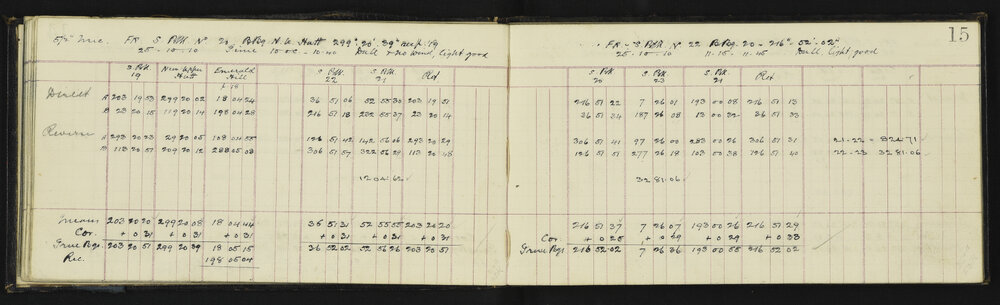 15
5½" Mic. FR S PBK Nº 20 B.Brg N.W. Hutt 299° 20' 39" see p. 19
25 - 10 - 10 Time 10.0 - 10.40 Dull & no wind, light good
S PBK 19 Near Upper Hutt Emerald Hill S PBK 22 S PBK 21 Ref
Direct A 203 19 53 299 20 02 18 04 24 36 51 06 52 55 30 203 19 51
B 23 20 15 119 20 14 198 04 28 216 51 18 232 55 37 23 20 14
Reverse A 293 20 23 29 20 05 108 04 55 126 51 42 142 56 06 293 20 29
B 113 20 51 209 20 12 288 05 08 306 51 57 322 56 29 113 20 48
1204.62
Means 203 20 20 299 20 08 18 04 44 36 51 31 52 55 55 203 20 20
Cor. + 0 31 + 0 31 + 0 31 + 0 31 + 0 31 + 0 31
True Bgs. 203 20 51 299 20 39 18 05 15 36 52 02 52 56 26 203 20 51
Rec. 198 05 04
FR - S PBK Nº 22 B.Brg. 20 - 216° - 52' - 02"
25 - 10 - 10 11.15 - 11.45 Dull, light good
S PBK 20 S PBK 23 S PBK 21 Ref
216 51 22 7 26 01 193 00 08 216 51 13
36 51 34 187 26 08 13 00 22 36 51 33
306 51 41 97 26 00 283 00 26 306 51 31 21-22 = 824.71
126 51 51 277 26 18 103 00 38 126 51 40 22-23 3281.06
3281.06
216 51 37 7 26 07 193 00 26 216 51 29
Cor + 0 25 + 0 29 + 0 29 + 0 33
True Bgs 216 52 02 7 26 36 193 00 55 216 52 02